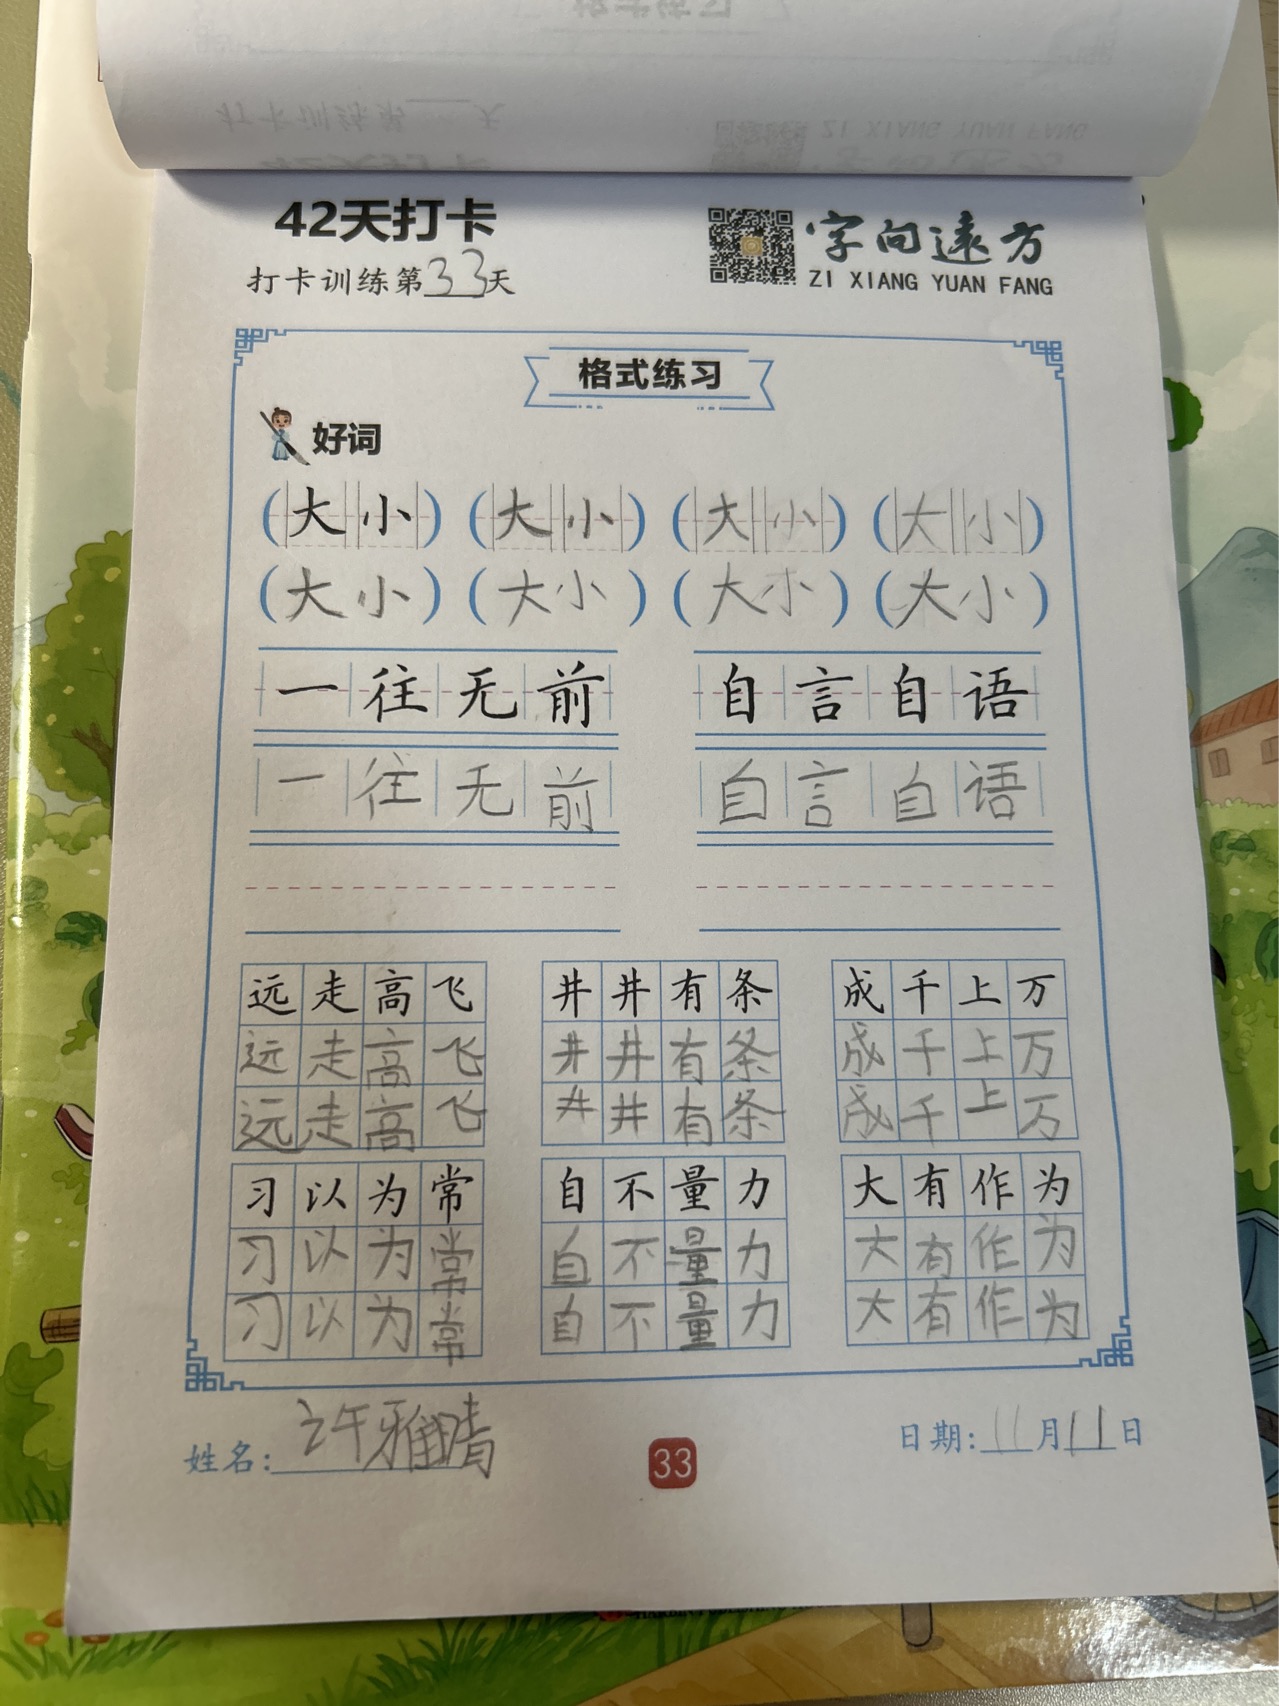 42天打卡
打卡训练第33天
字向远方
ZI XIANG YUAN FANG
格式练习
好词
(大小) (大小) (大小) (大小)
(大小) (大小) (大小) (大小)
一往无前 自言自语
一往无前 自言自语
远走高飞 井井有条 成千上万
远走高飞 井井有条 成千上万
远走高飞 井井有条 成千上万
习以为常 自不量力 大有作为
习以为常 自不量力 大有作为
习以为常 自不量力 大有作为
姓名:许雅晴
33
日期:11月11日